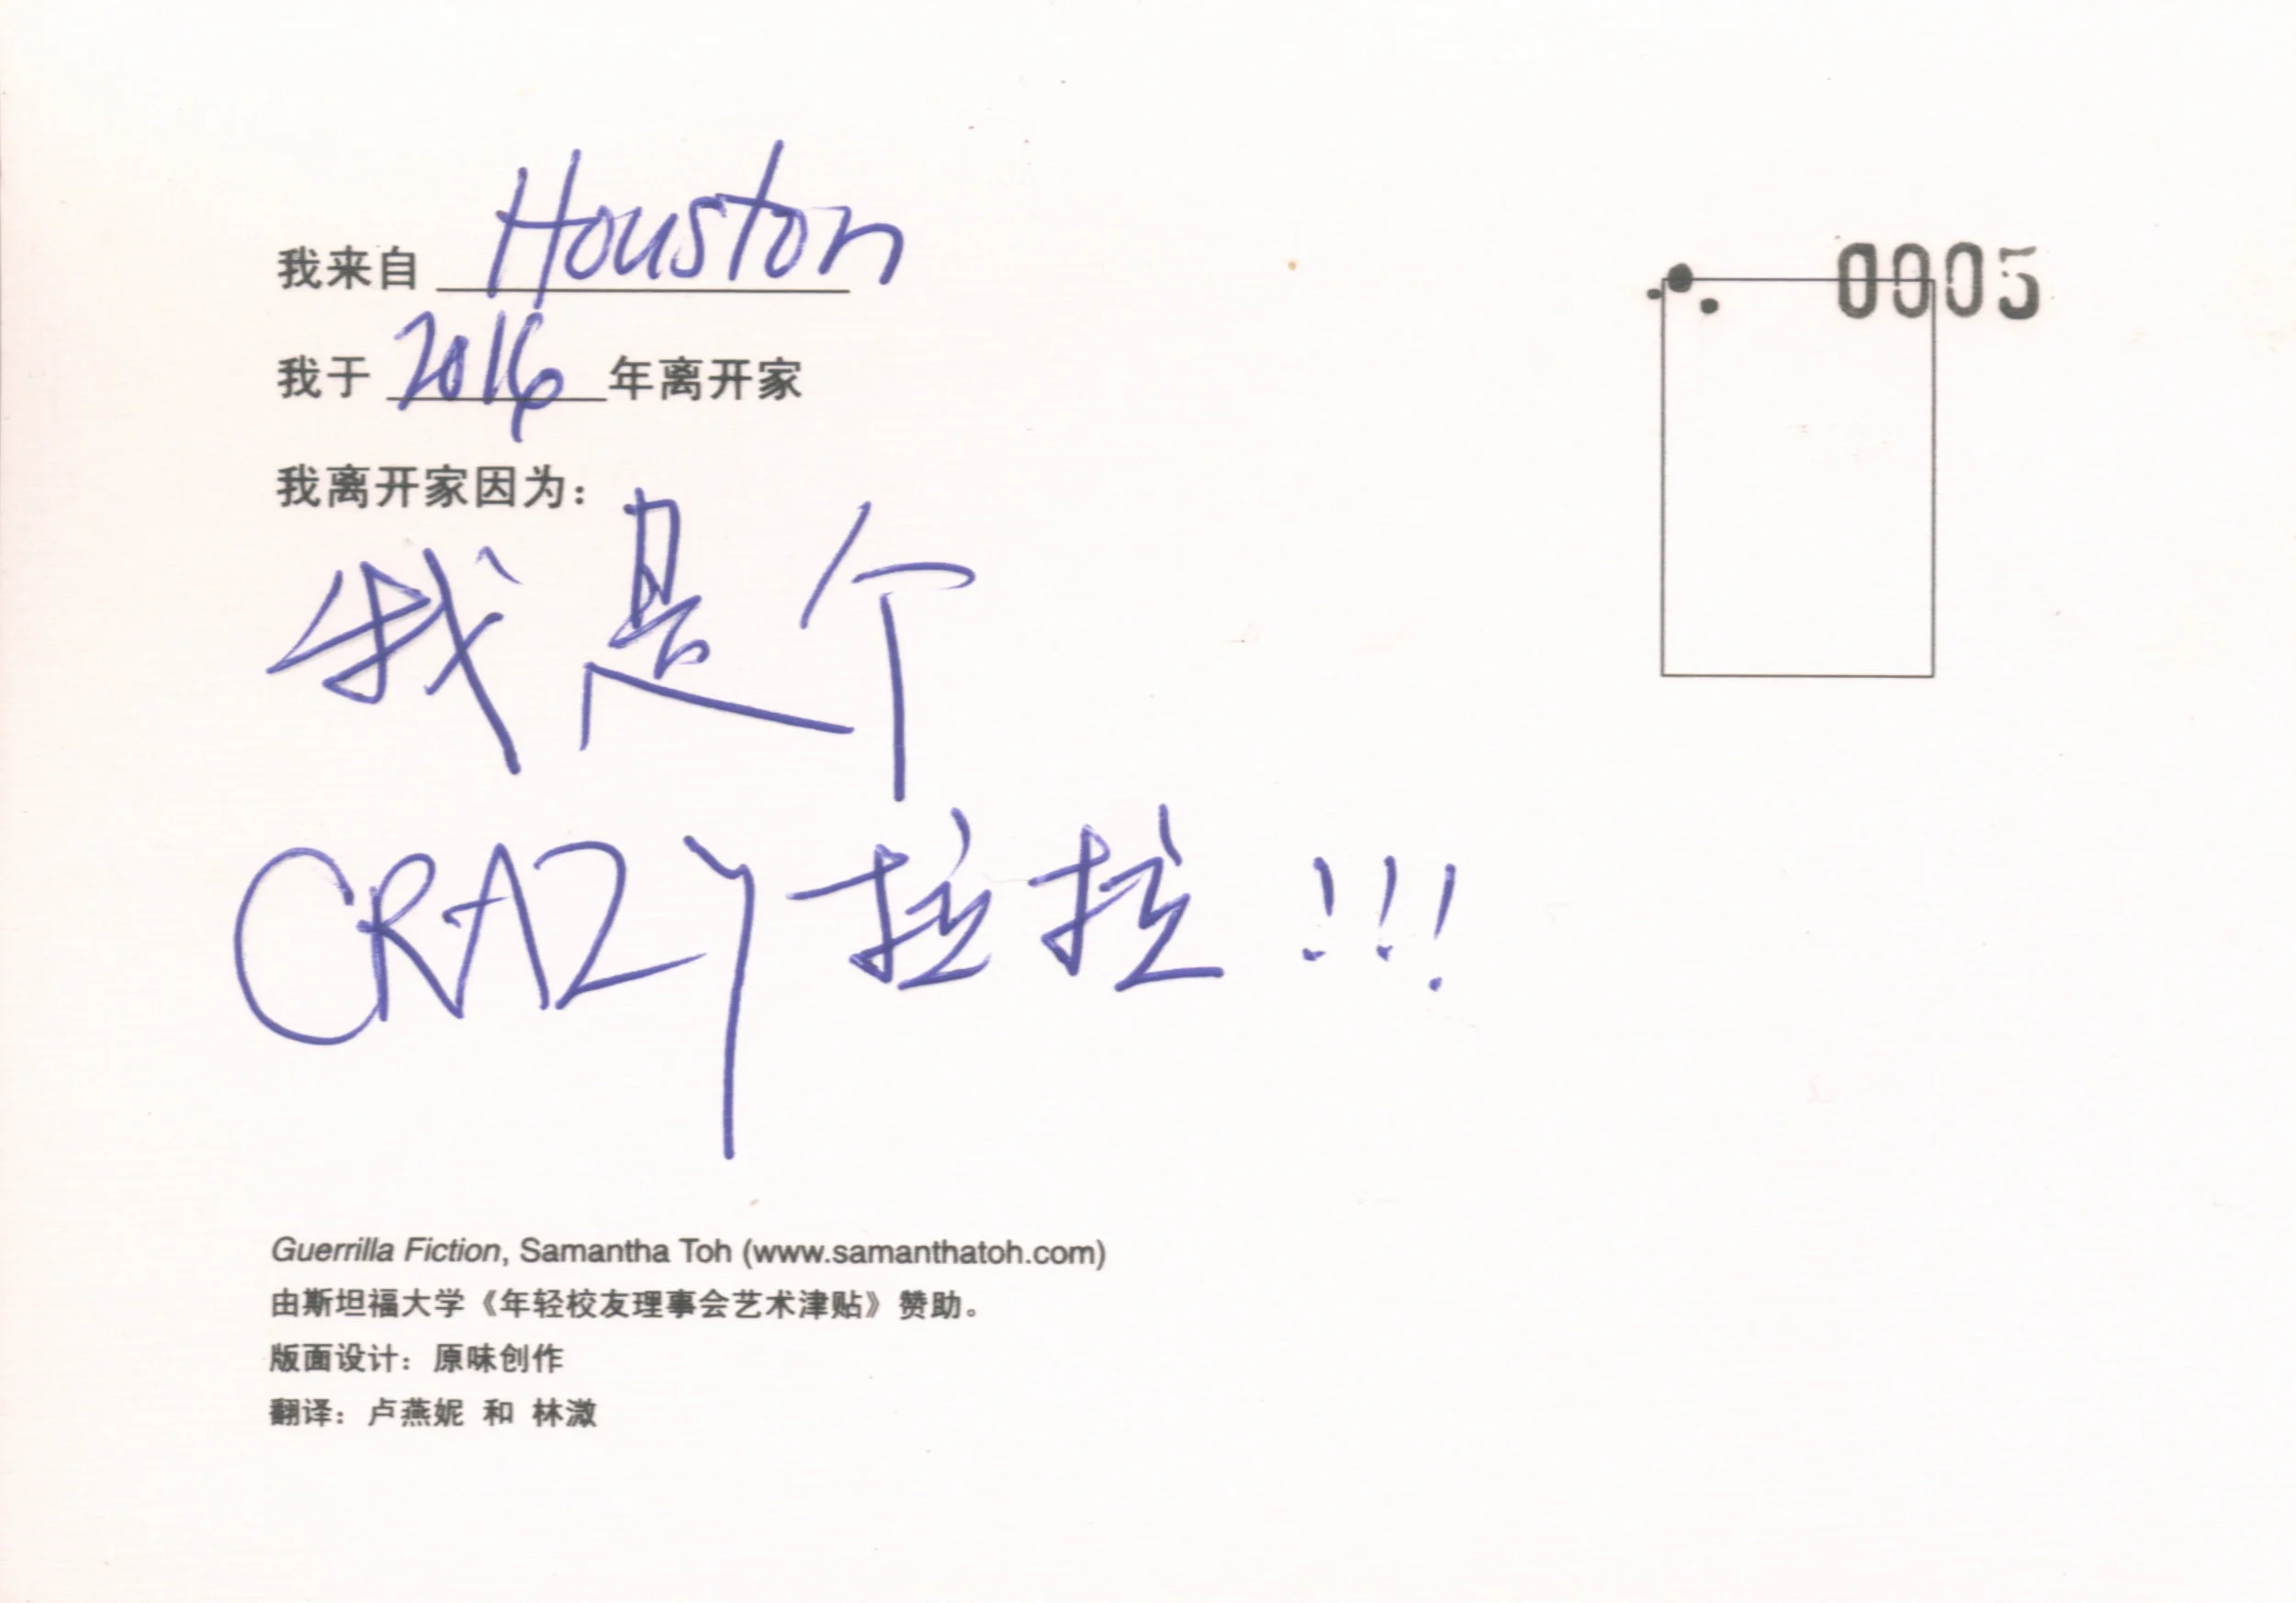 我来自 Houston
0005
我于 2016 年离开家
我离开家因为：
我是个
CRAZY 拉拉 !!!
Guerrilla Fiction, Samantha Toh (www.samanthatoh.com)
由斯坦福大学《年轻校友理事会艺术津贴》赞助。
版面设计：原味创作
翻译：卢燕妮 和 林溦